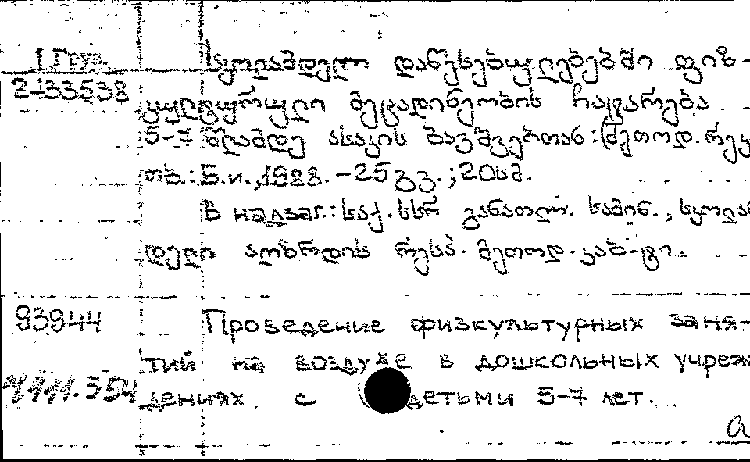 1 Груз.
2-33538
სკოლამდელ დაწესებულებებში ფიზ-
კულტურული მეცადინეობის ჩატარება
5-7 წლამდე ასაკის ბავშვებთან: (მეთოდ. რეკ
თბ.: Б.и., 1988. - 25 გვ.; 20სმ.
В надзаг.: საქ. სსრ განათლ. სამინ., სკოლამ
დელი აღზრდის რესპ. მეთოდ. კაბ-ტი.
93944
Проведение физкультурных заня-
тий на воздухе в дошкольных учреж
дениях с детьми 5-7 лет.